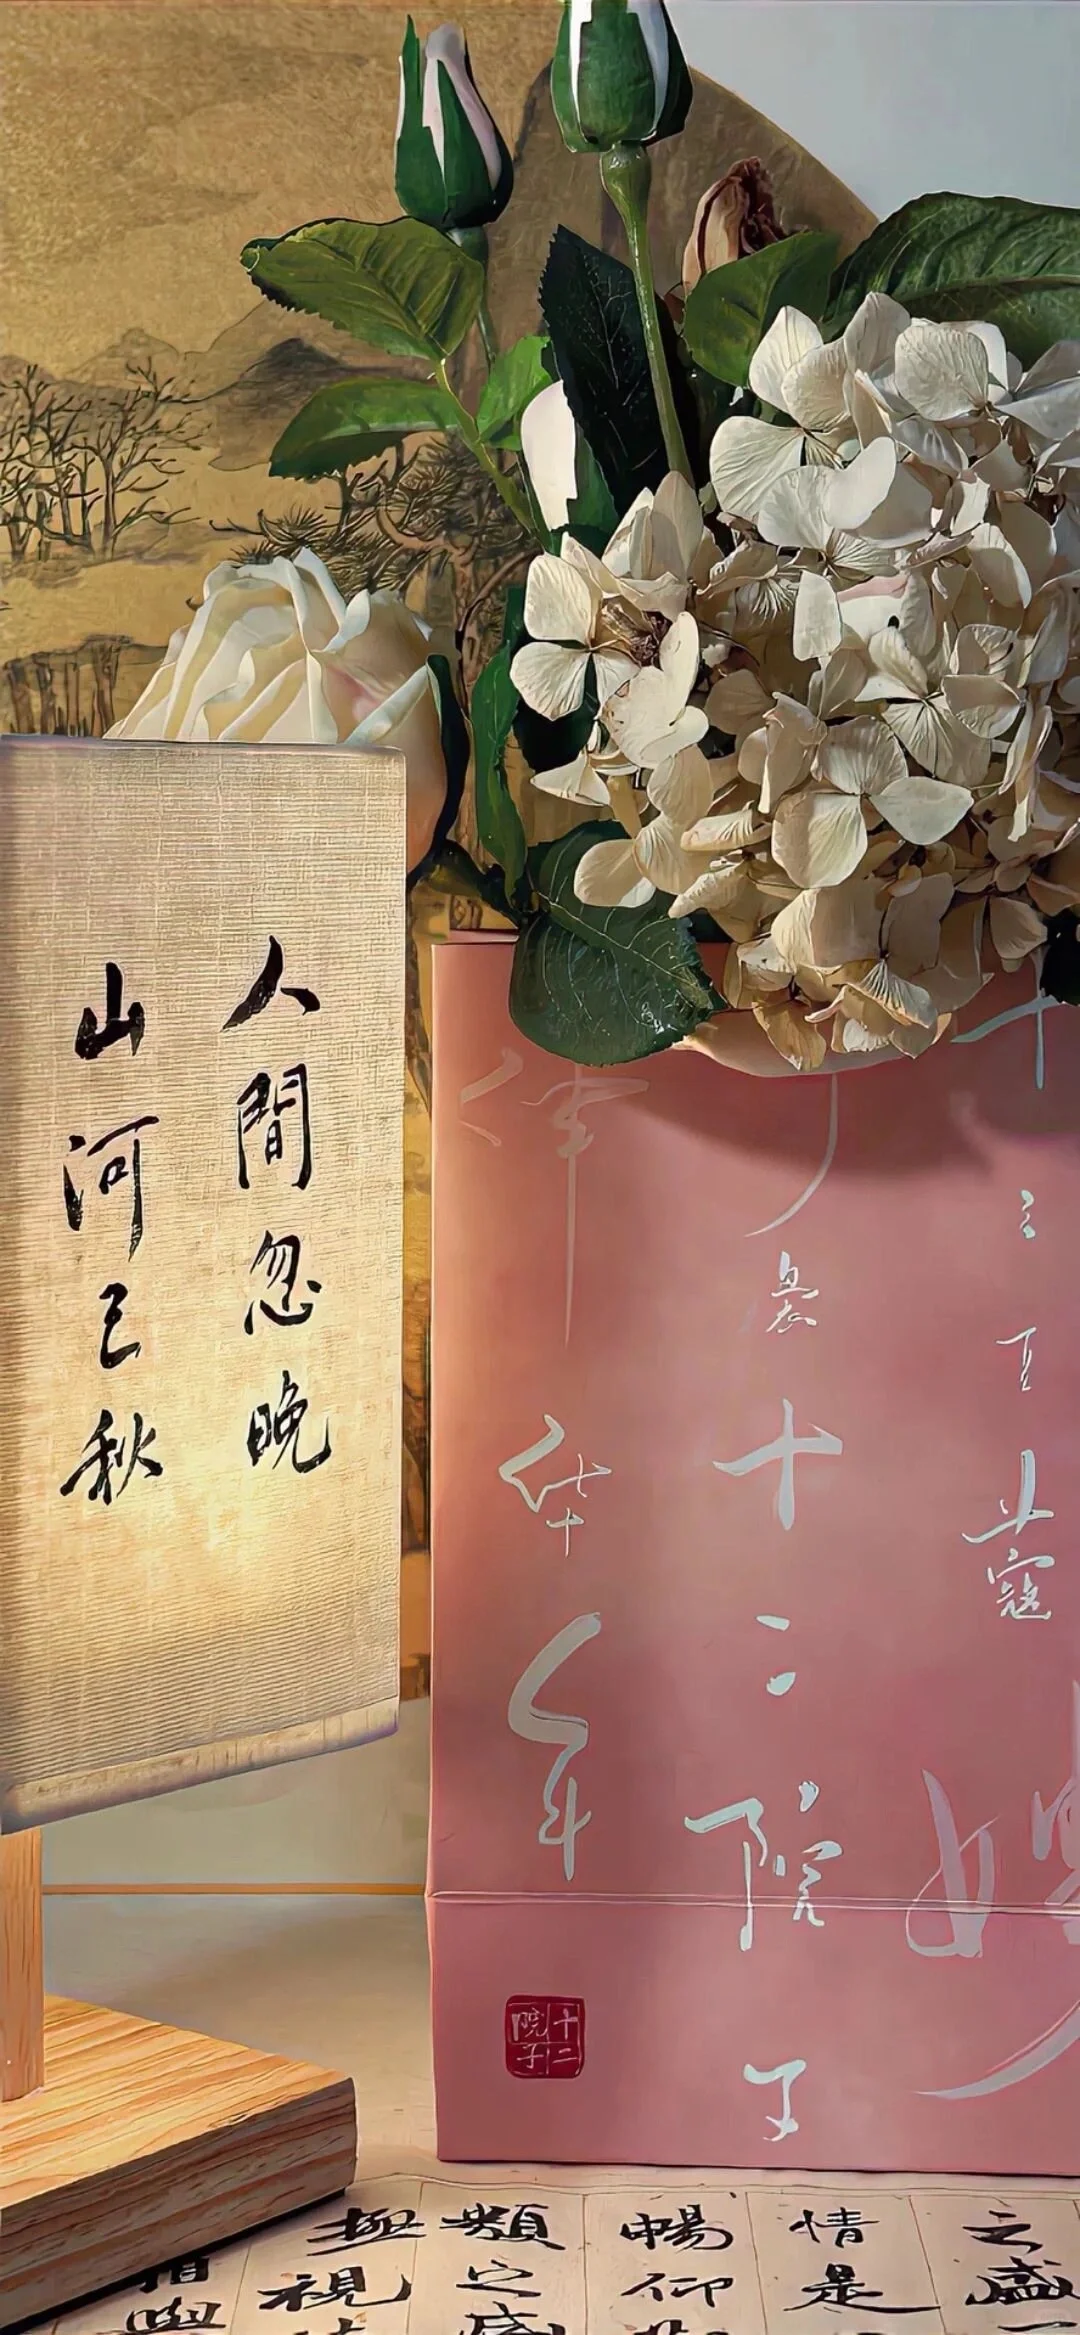 人間忽晚
山河已秋
裊
十二院子
華年
十二
院子
之盛一
情是
暢仰
類之盛
極視
相與